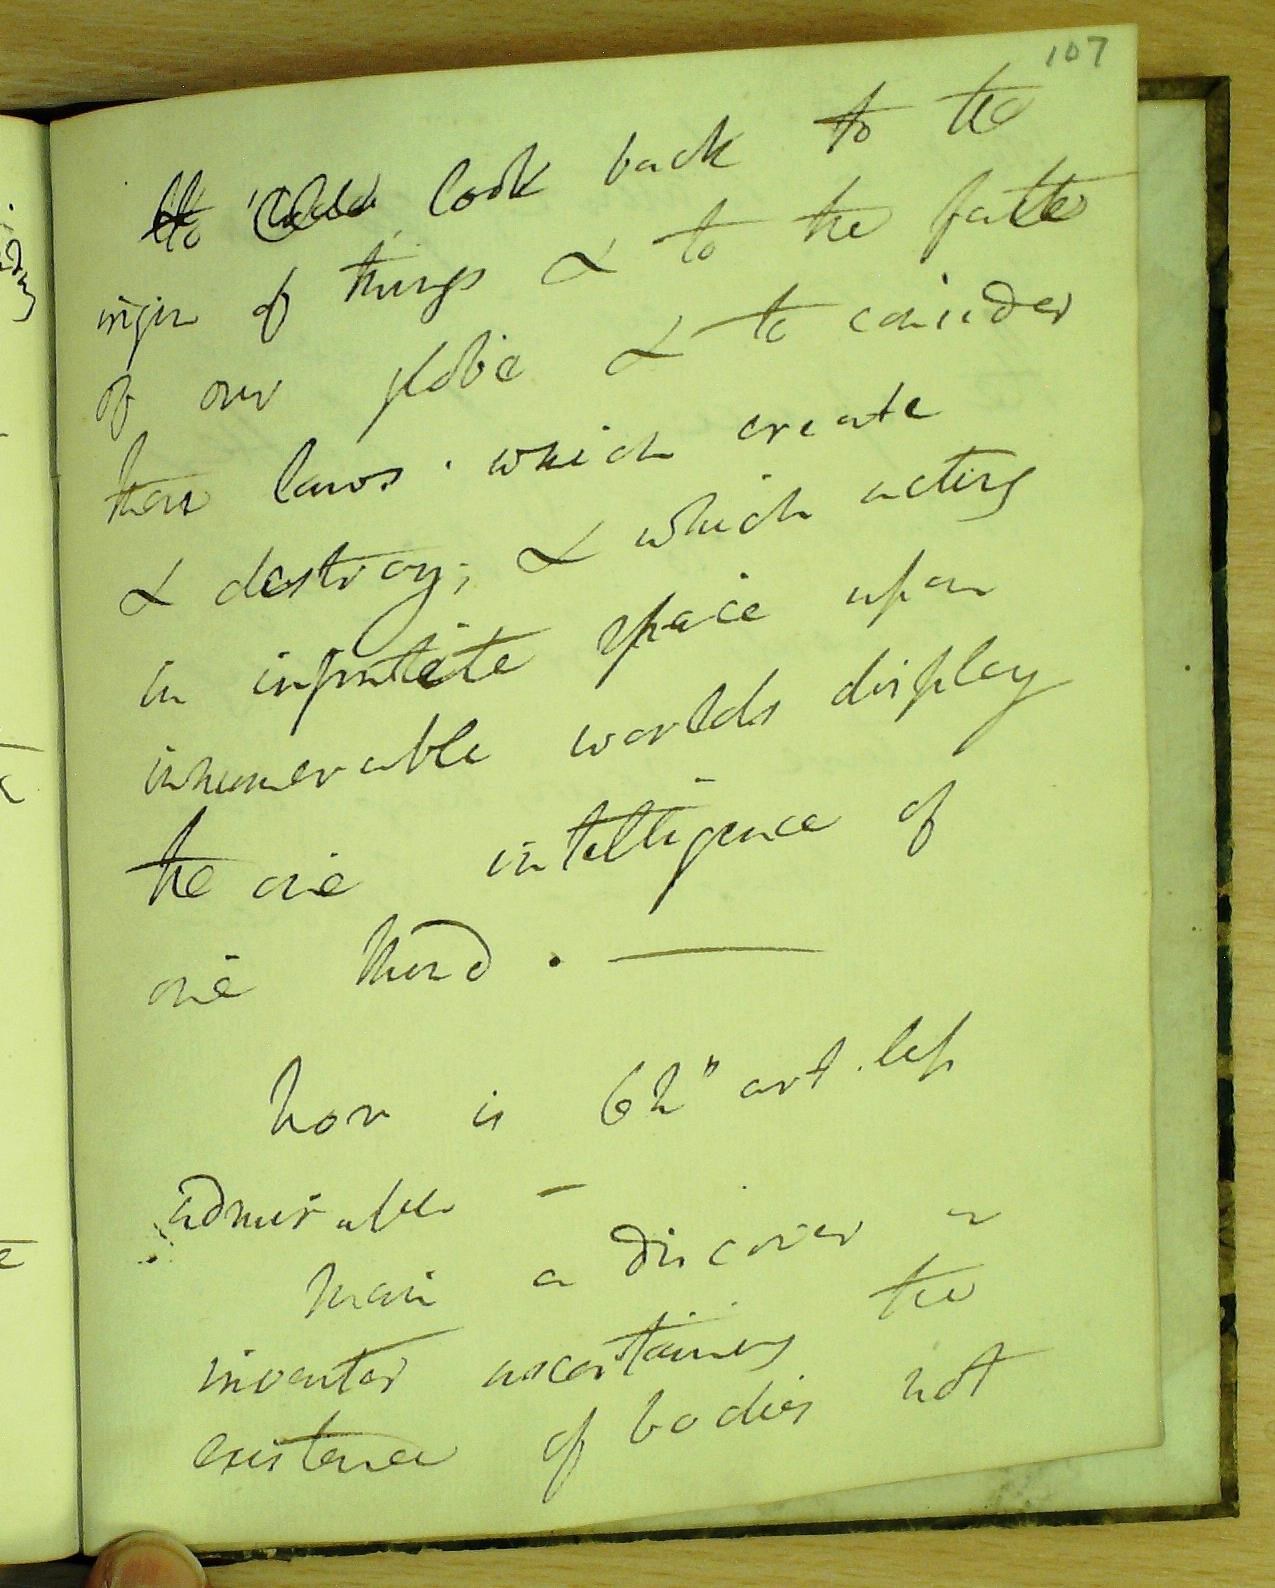 107
to look back to the
origin of things & to the fate
of our globe & to consider
those laws which create
& destroy; & which acting
in infinite space upon
innumerable worlds display
the one intelligence of
one Mind. —
how is
admirable —
Man a discoverer an
inventor ascertaining the
existence of bodies not